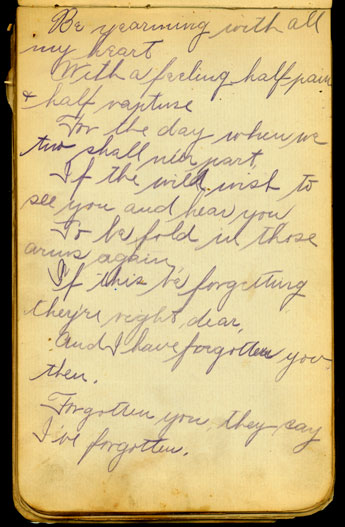 Be yearning with all
my heart
With a feeling half pain
& half rapture
For the day when we
two shall ne'er part,
If the wild wish to
see you and hear you
To be fold in those
arms again
If this be forgetting
they're right, dear,
And I have forgotten you
then.
Forgotten you, they say
I've forgotten.